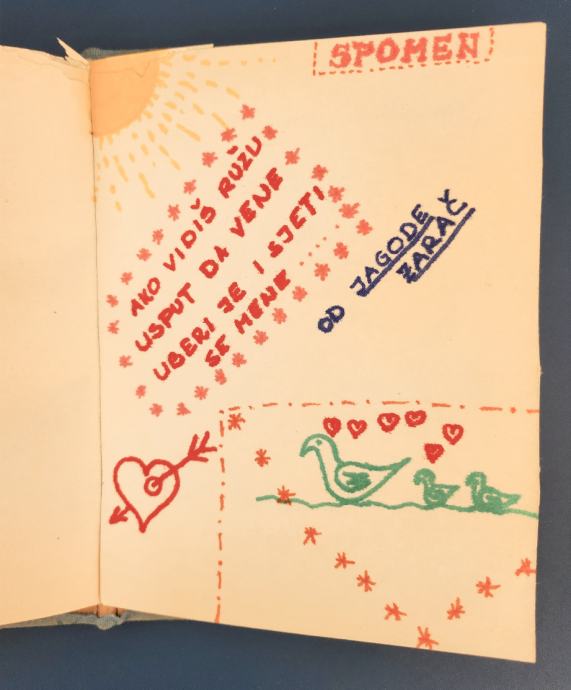 SPOMEN
AKO VIDIŠ RUŽU
USPUT DA VENE
UBERI JE I SJETI
SE MENE ......
OD JAGODE
ŽARAČ